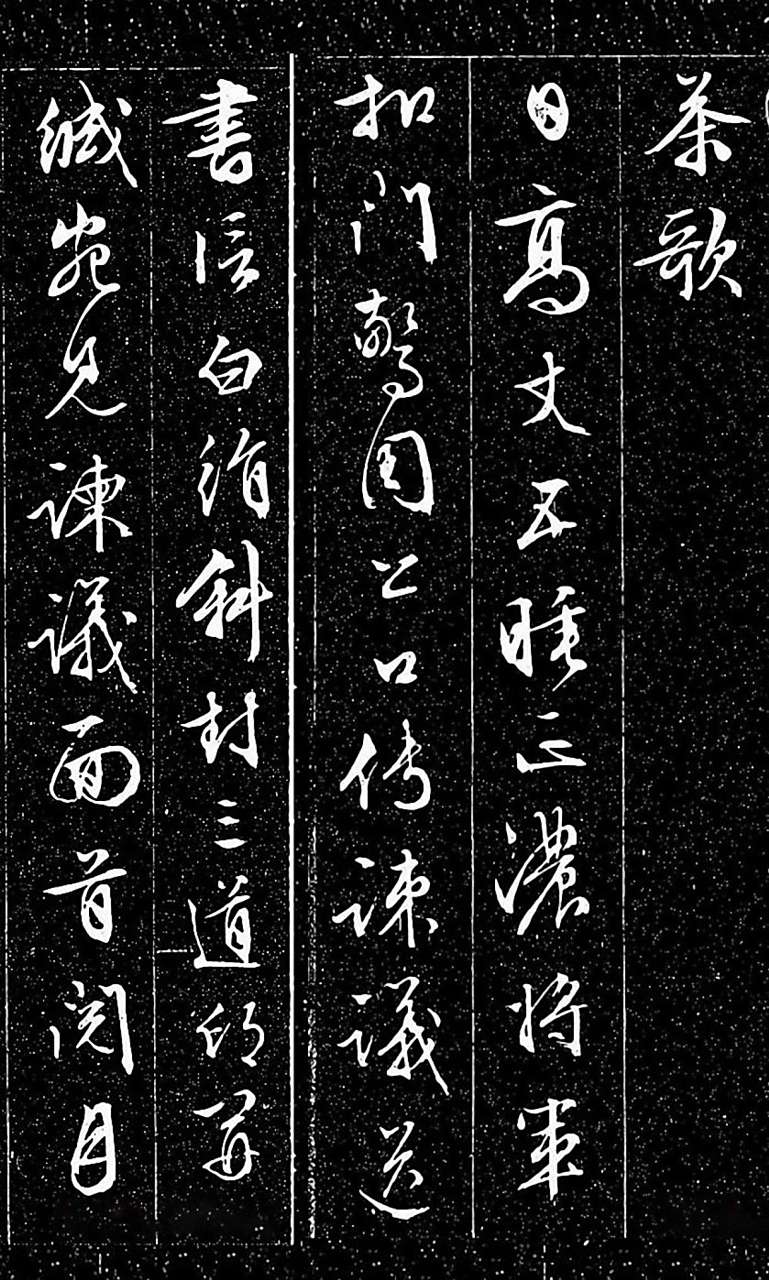 茶歌
日高丈五睡正濃將軍
扣門驚周公口傳諫議送
書信白絹斜封三道印開
緘宛見諫議面首閱月